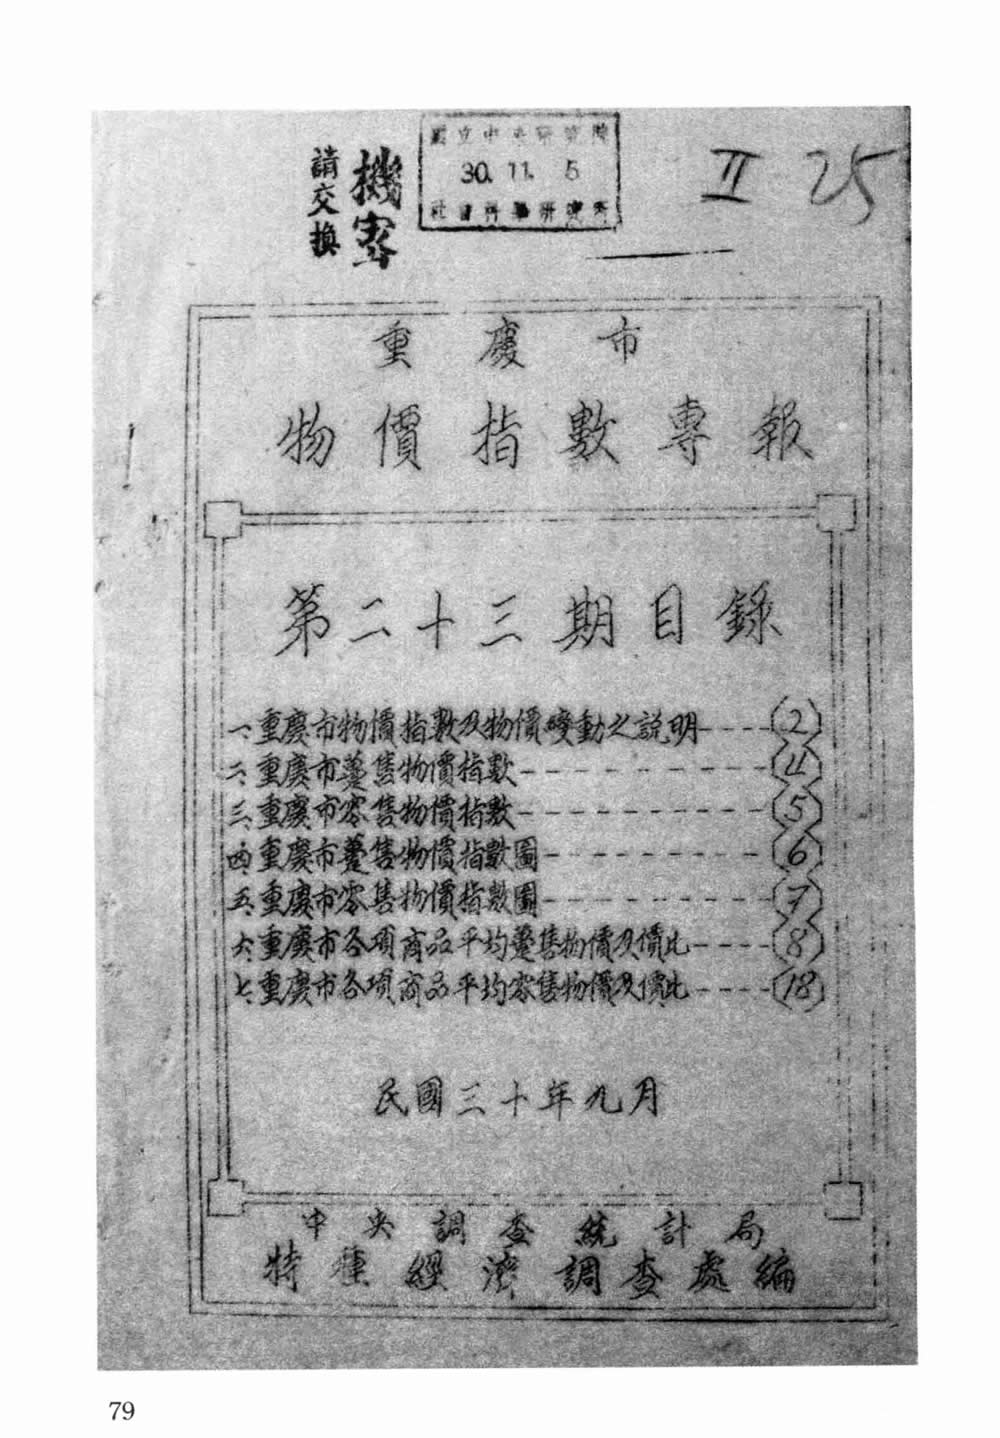 機密
請交換
國立中央研究院
30. 11. 5
社會科學研究所
II 25
重慶市
物價指數專報
第二十三期目錄
一、重慶市物價指數及物價變動之說明----(2)
二、重慶市躉售物價指數----(4)
三、重慶市零售物價指數----(5)
四、重慶市躉售物價指數圖----(6)
五、重慶市零售物價指數圖----(7)
六、重慶市各項商品平均躉售物價及價比----(8)
七、重慶市各項商品平均零售物價及價比----(18)
民國三十年九月
中央調查統計局
特種經濟調查處編
79